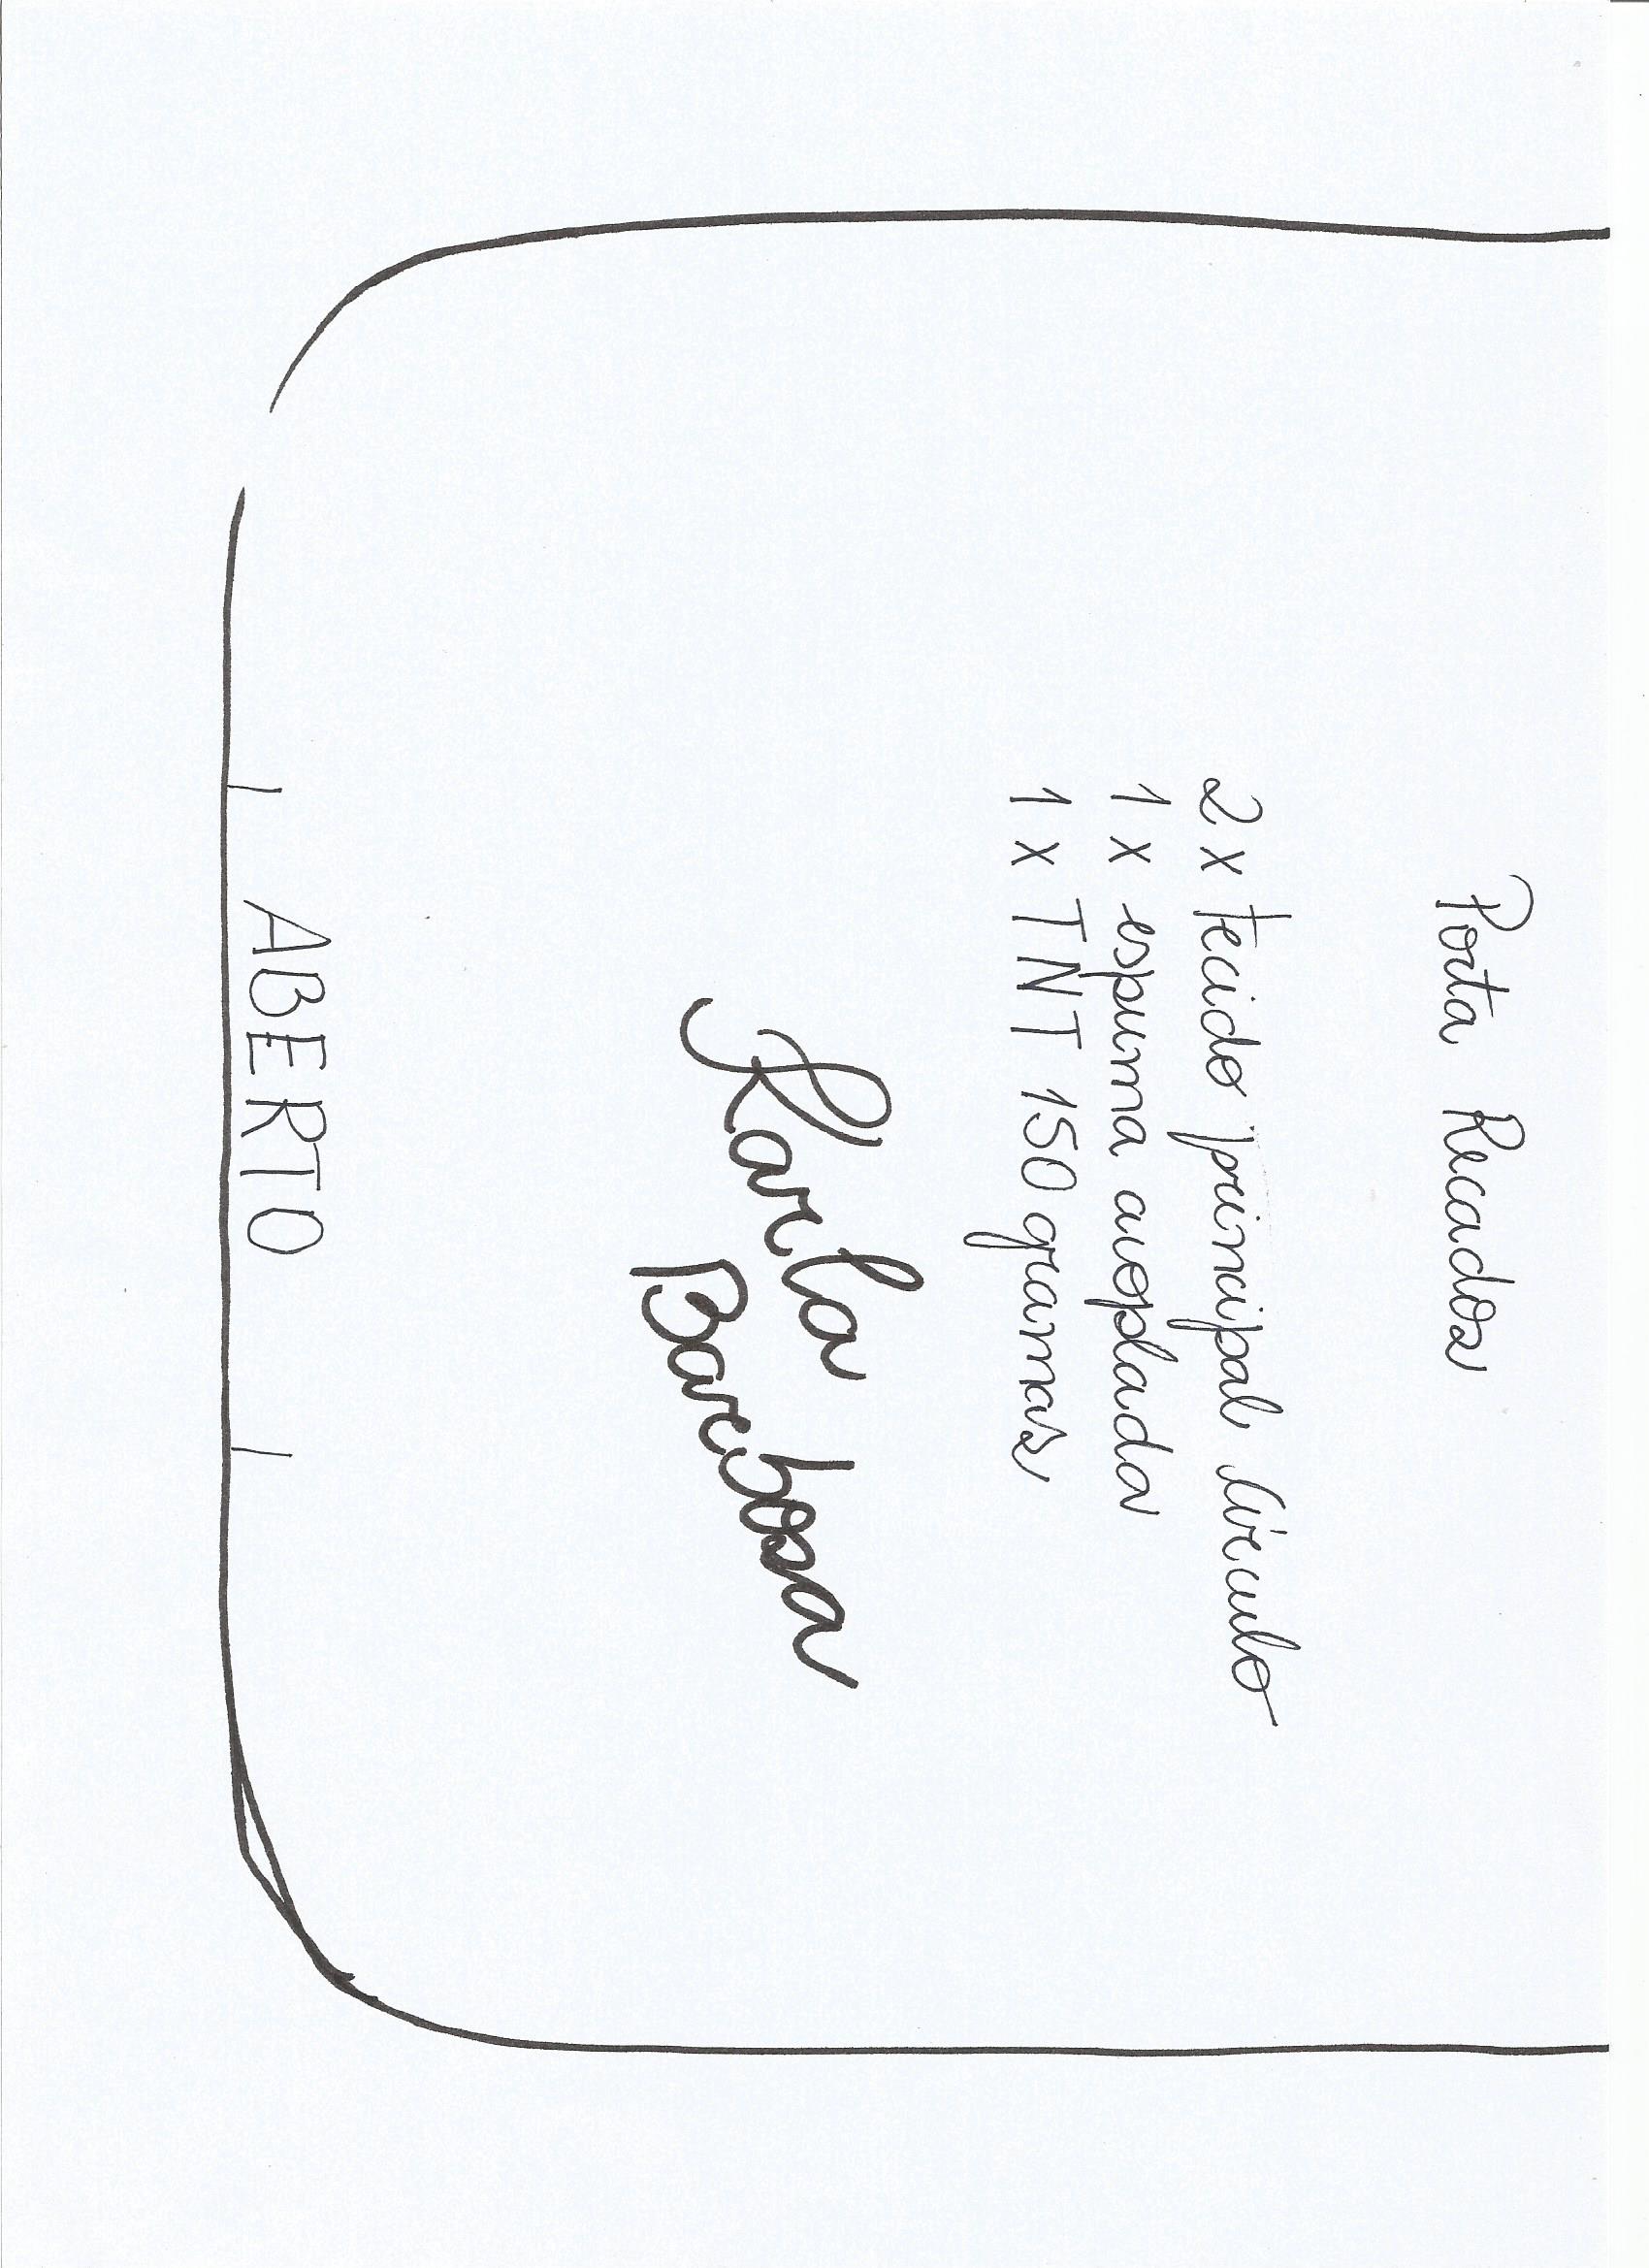 Porta Recados
2 x tecido principal Círculo
1 x espuma acoplada
1 x TNT 150 gramas
Karla
Barbosa
ABERTO